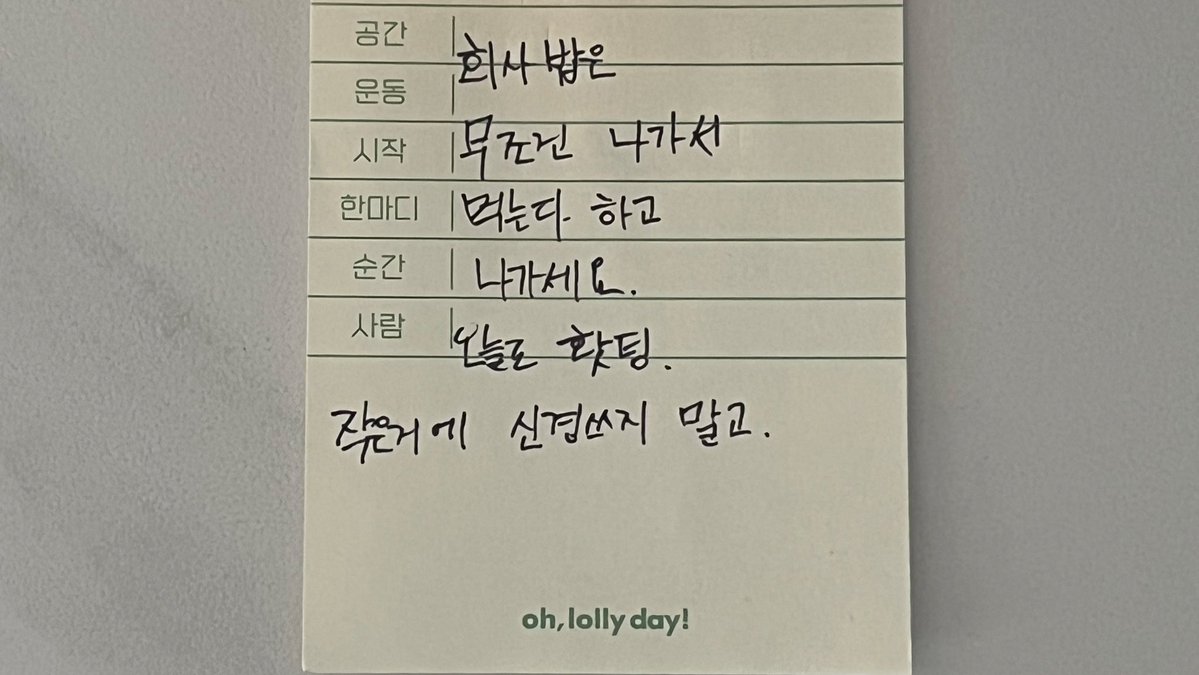 공간
회사 밥은
운동
시작 무조건 나가서
한마디 먹는다 하고
순간 나가세요.
사람 오늘도 홧팅.
작은거에 신경쓰지 말고.
oh, lolly day!